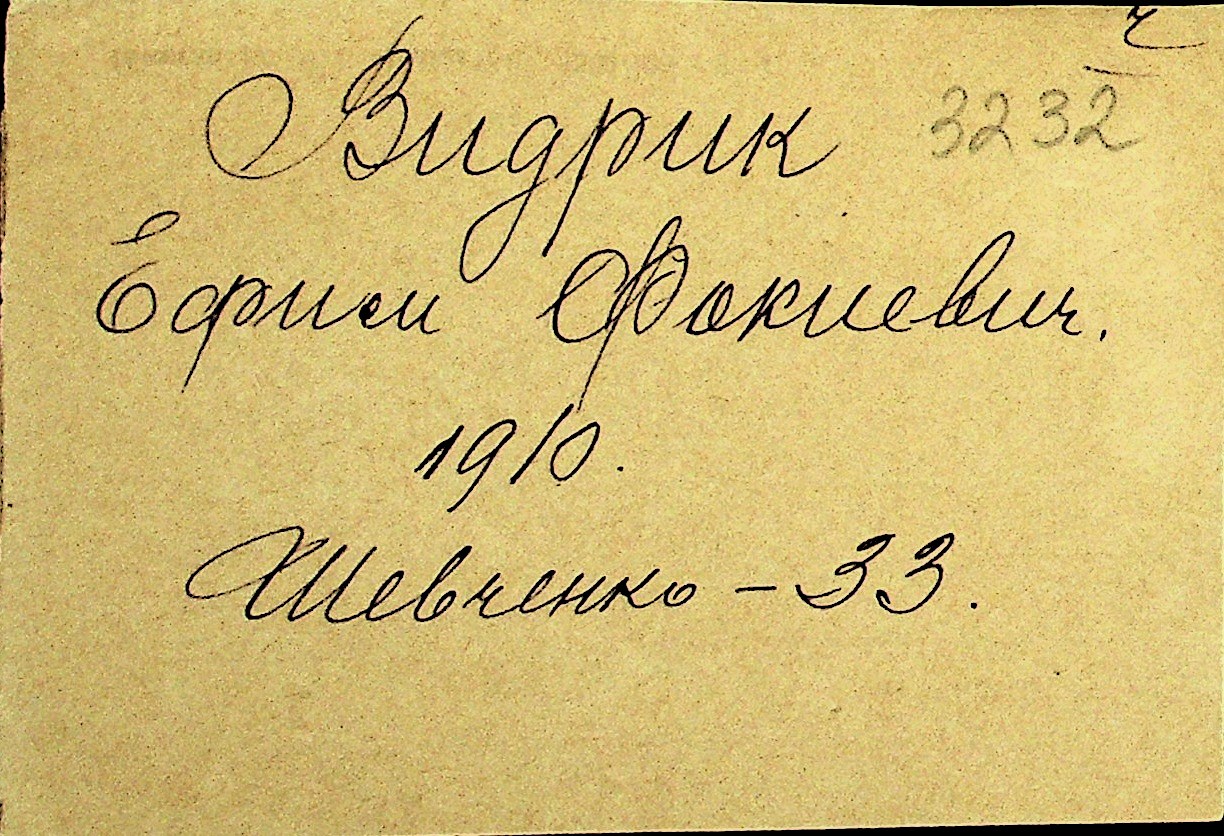 ч
Видрик 3232
Ефим Фокиевич.
1910.
Шевченко – 33.